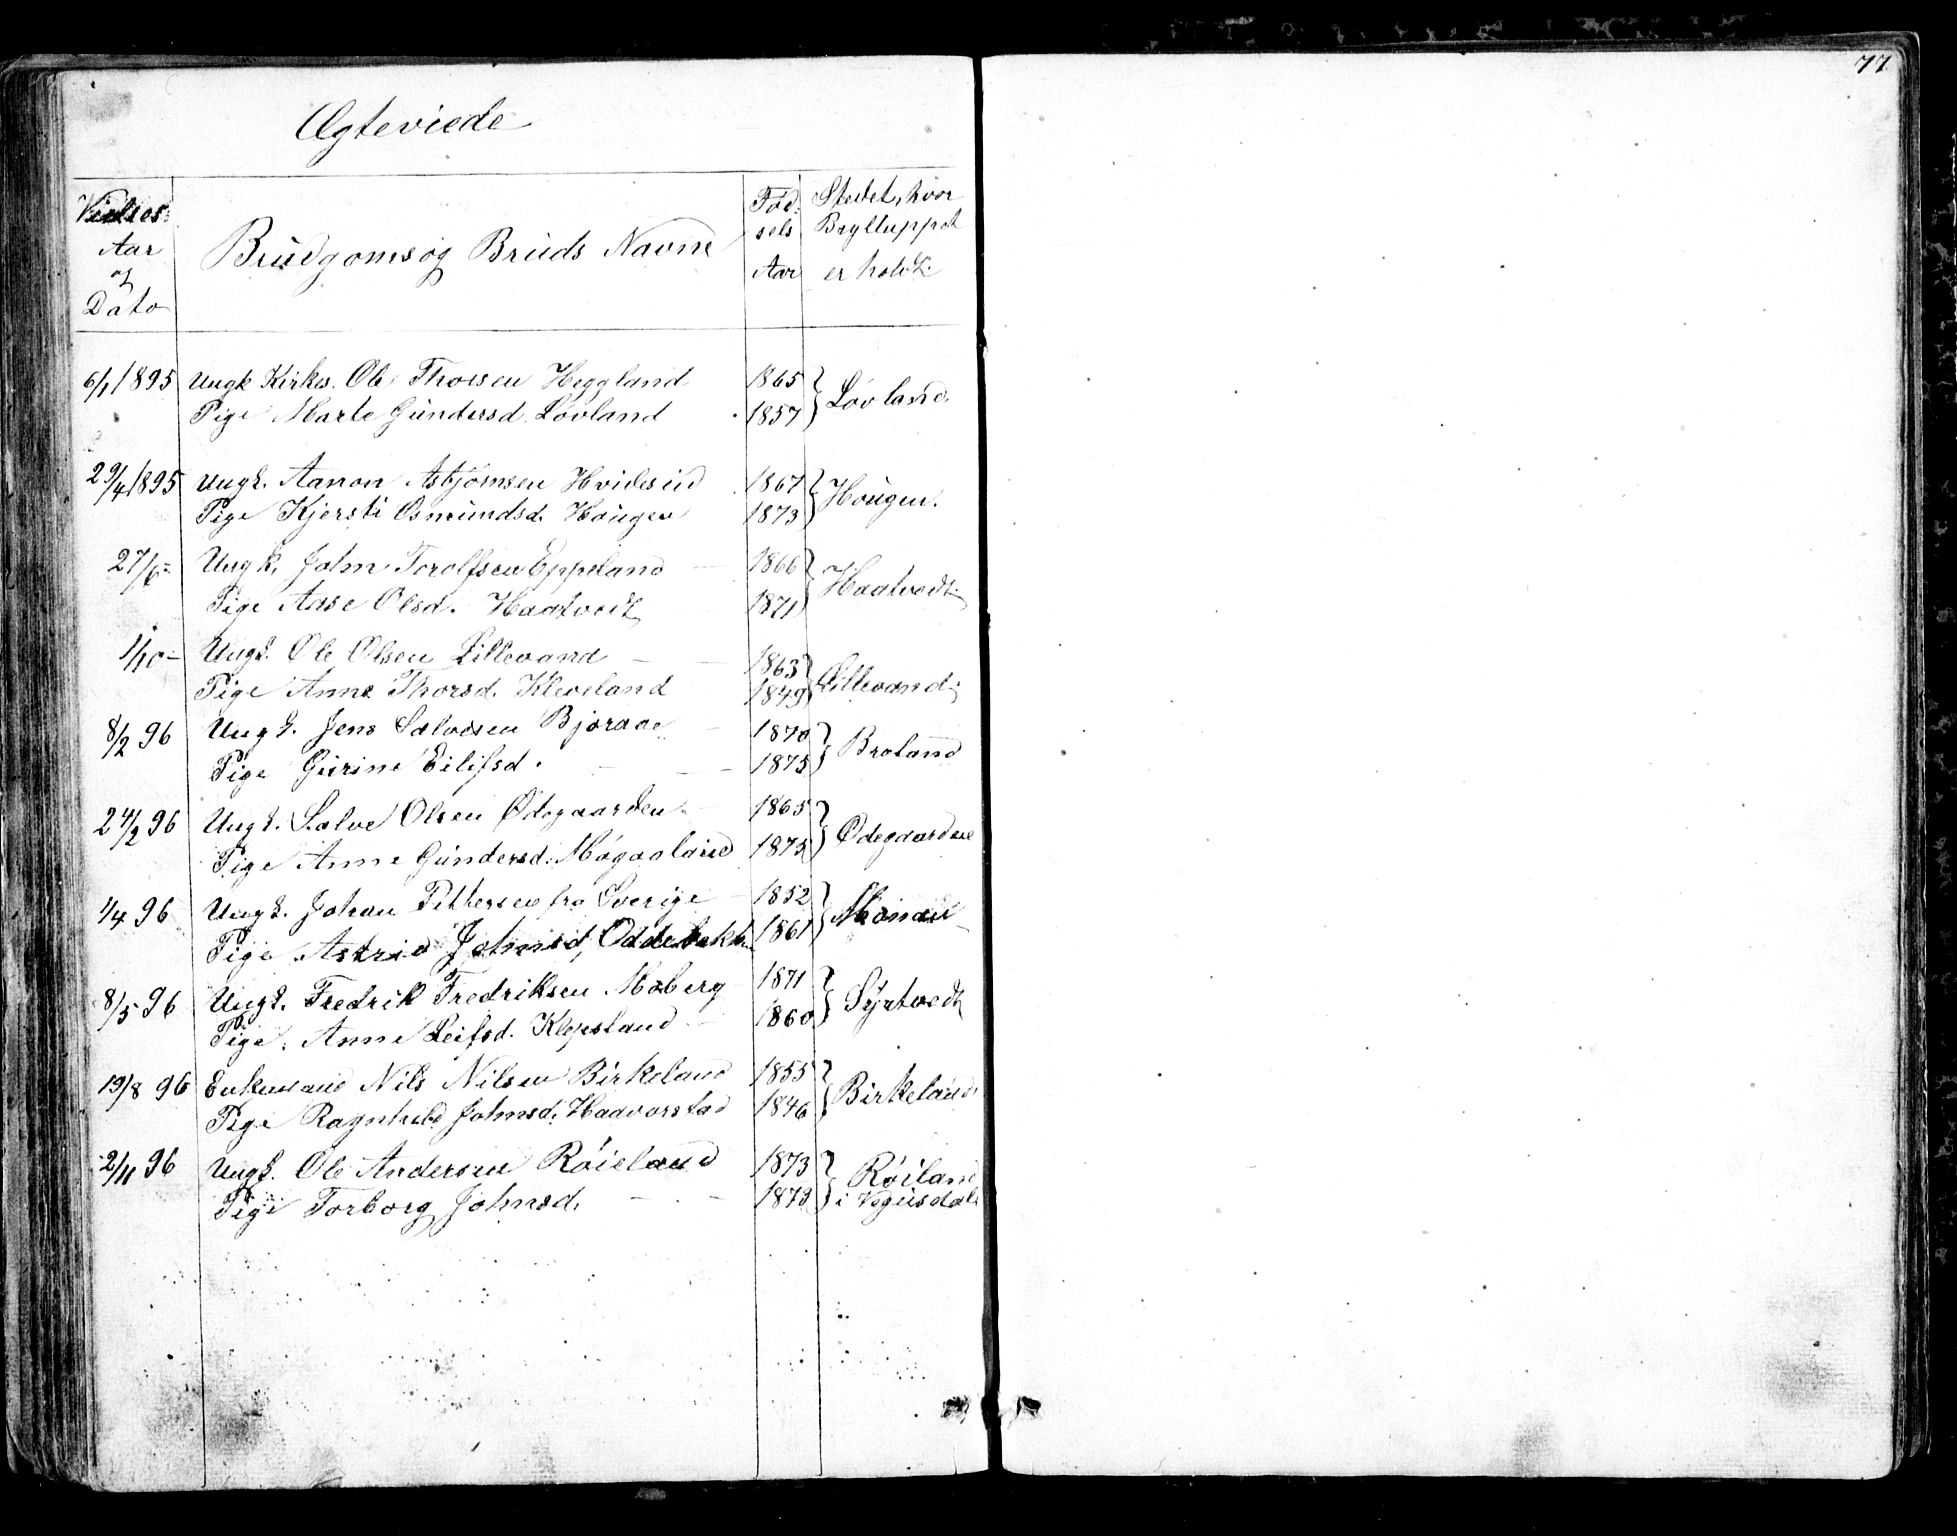 77
Ægteviede
Vielses
Aar
og
Dato
Brudgoms og Bruds Navne
Fød-
sels
Aar
Stedet, hvor
Brylluppet
er holdt.
6/1 1895 Ungk Kirkes. Ole Thorsen Heggland 1865
Pige Marte Gundersd. Løvland 1857 Løvland.
29/4 1895 Ungk. Aanon Asbjørnsen Hvidesund 1867
Pige Kjersti Osmundsd. Hougen 1873 Hougen.
27/6 = Ungk. John Torolfsen Eppeland 1866
Pige Aase Olsd. Haatvedt 1871 Haatvedt.
1/10 - Ungk. Ole Olsen Lillevand 1863
Pige Anne Thorsd. Kleveland 1849 Lillevand.
8/2 96 Ungk. Jens Salvesen Bjoraae 1870
Pige Gurine Eilifsd. 1875 Breland
24/2 96 Ungk. Salve Olsen Ødegaarden 1865
Pige Anne Gundersd. 1875 Ødegaardene
1/4 96 Ungk. Johan Pettersen fra Sverige 1852
Pige Astrid Johnsd, Oddebakke 1861
8/5 96 Ungk. Fredrik Fredriksen Moberg 1871
Pige. Anne Leifsd. Klepsland 1860 Syrtvedt
19/8 96 Enkemand Nils Nilsen Birkeland 1855
Pige Ragnhild Johnsd. Haavorstad 1846 Birkeland.
2/11 96 Ungk. Ole Andersen Røieland 1873 Røiland
Pige Torborg Johnsd. 1873 i Vegusdal